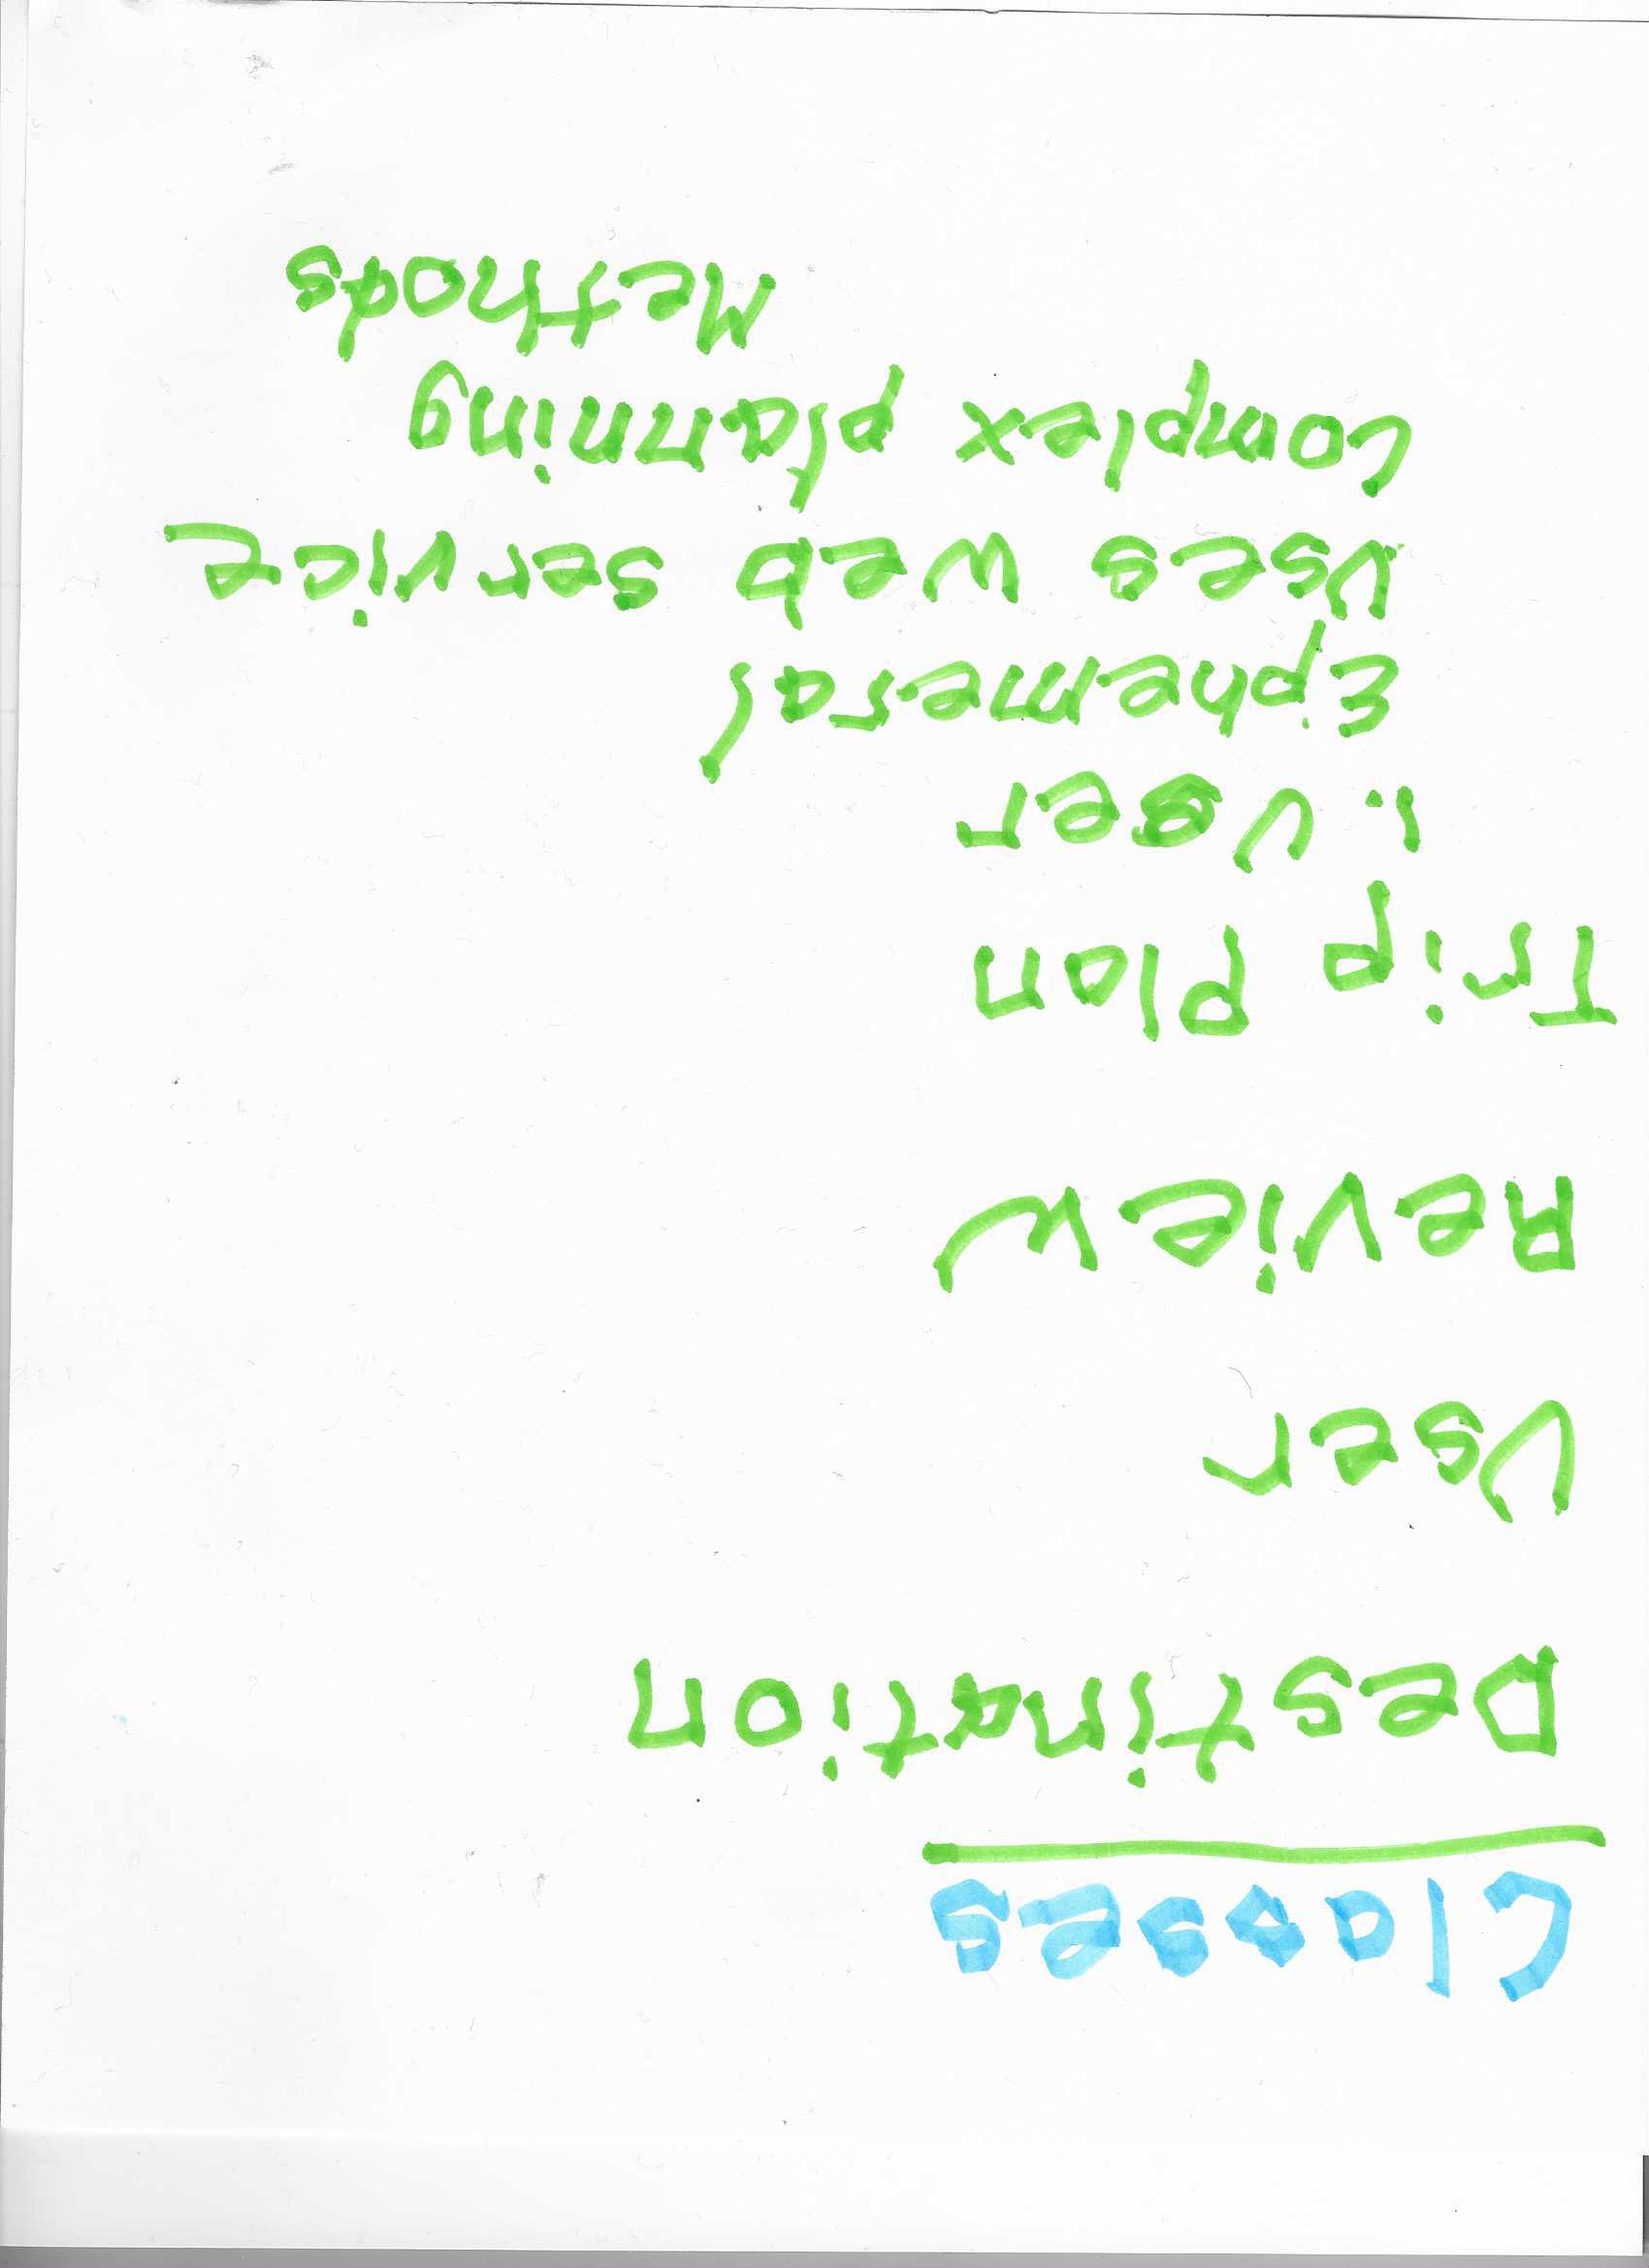 Classes
Destination
User
Review
Trip Plan
1. User
Ephemeral
Uses web service
complex planning
Methods